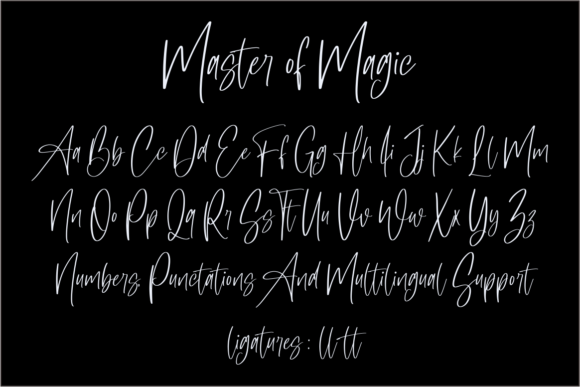 Master of Magic
Aa Bb Cc Dd Ee Ff Gg Hh Ii Jj Kk Ll Mm
Nn Oo Pp Qq Rr Ss Tt Uu Vv Ww Xx Yy Zz
Numbers, Punctations And Multilingual Support
ligatures : ll tt